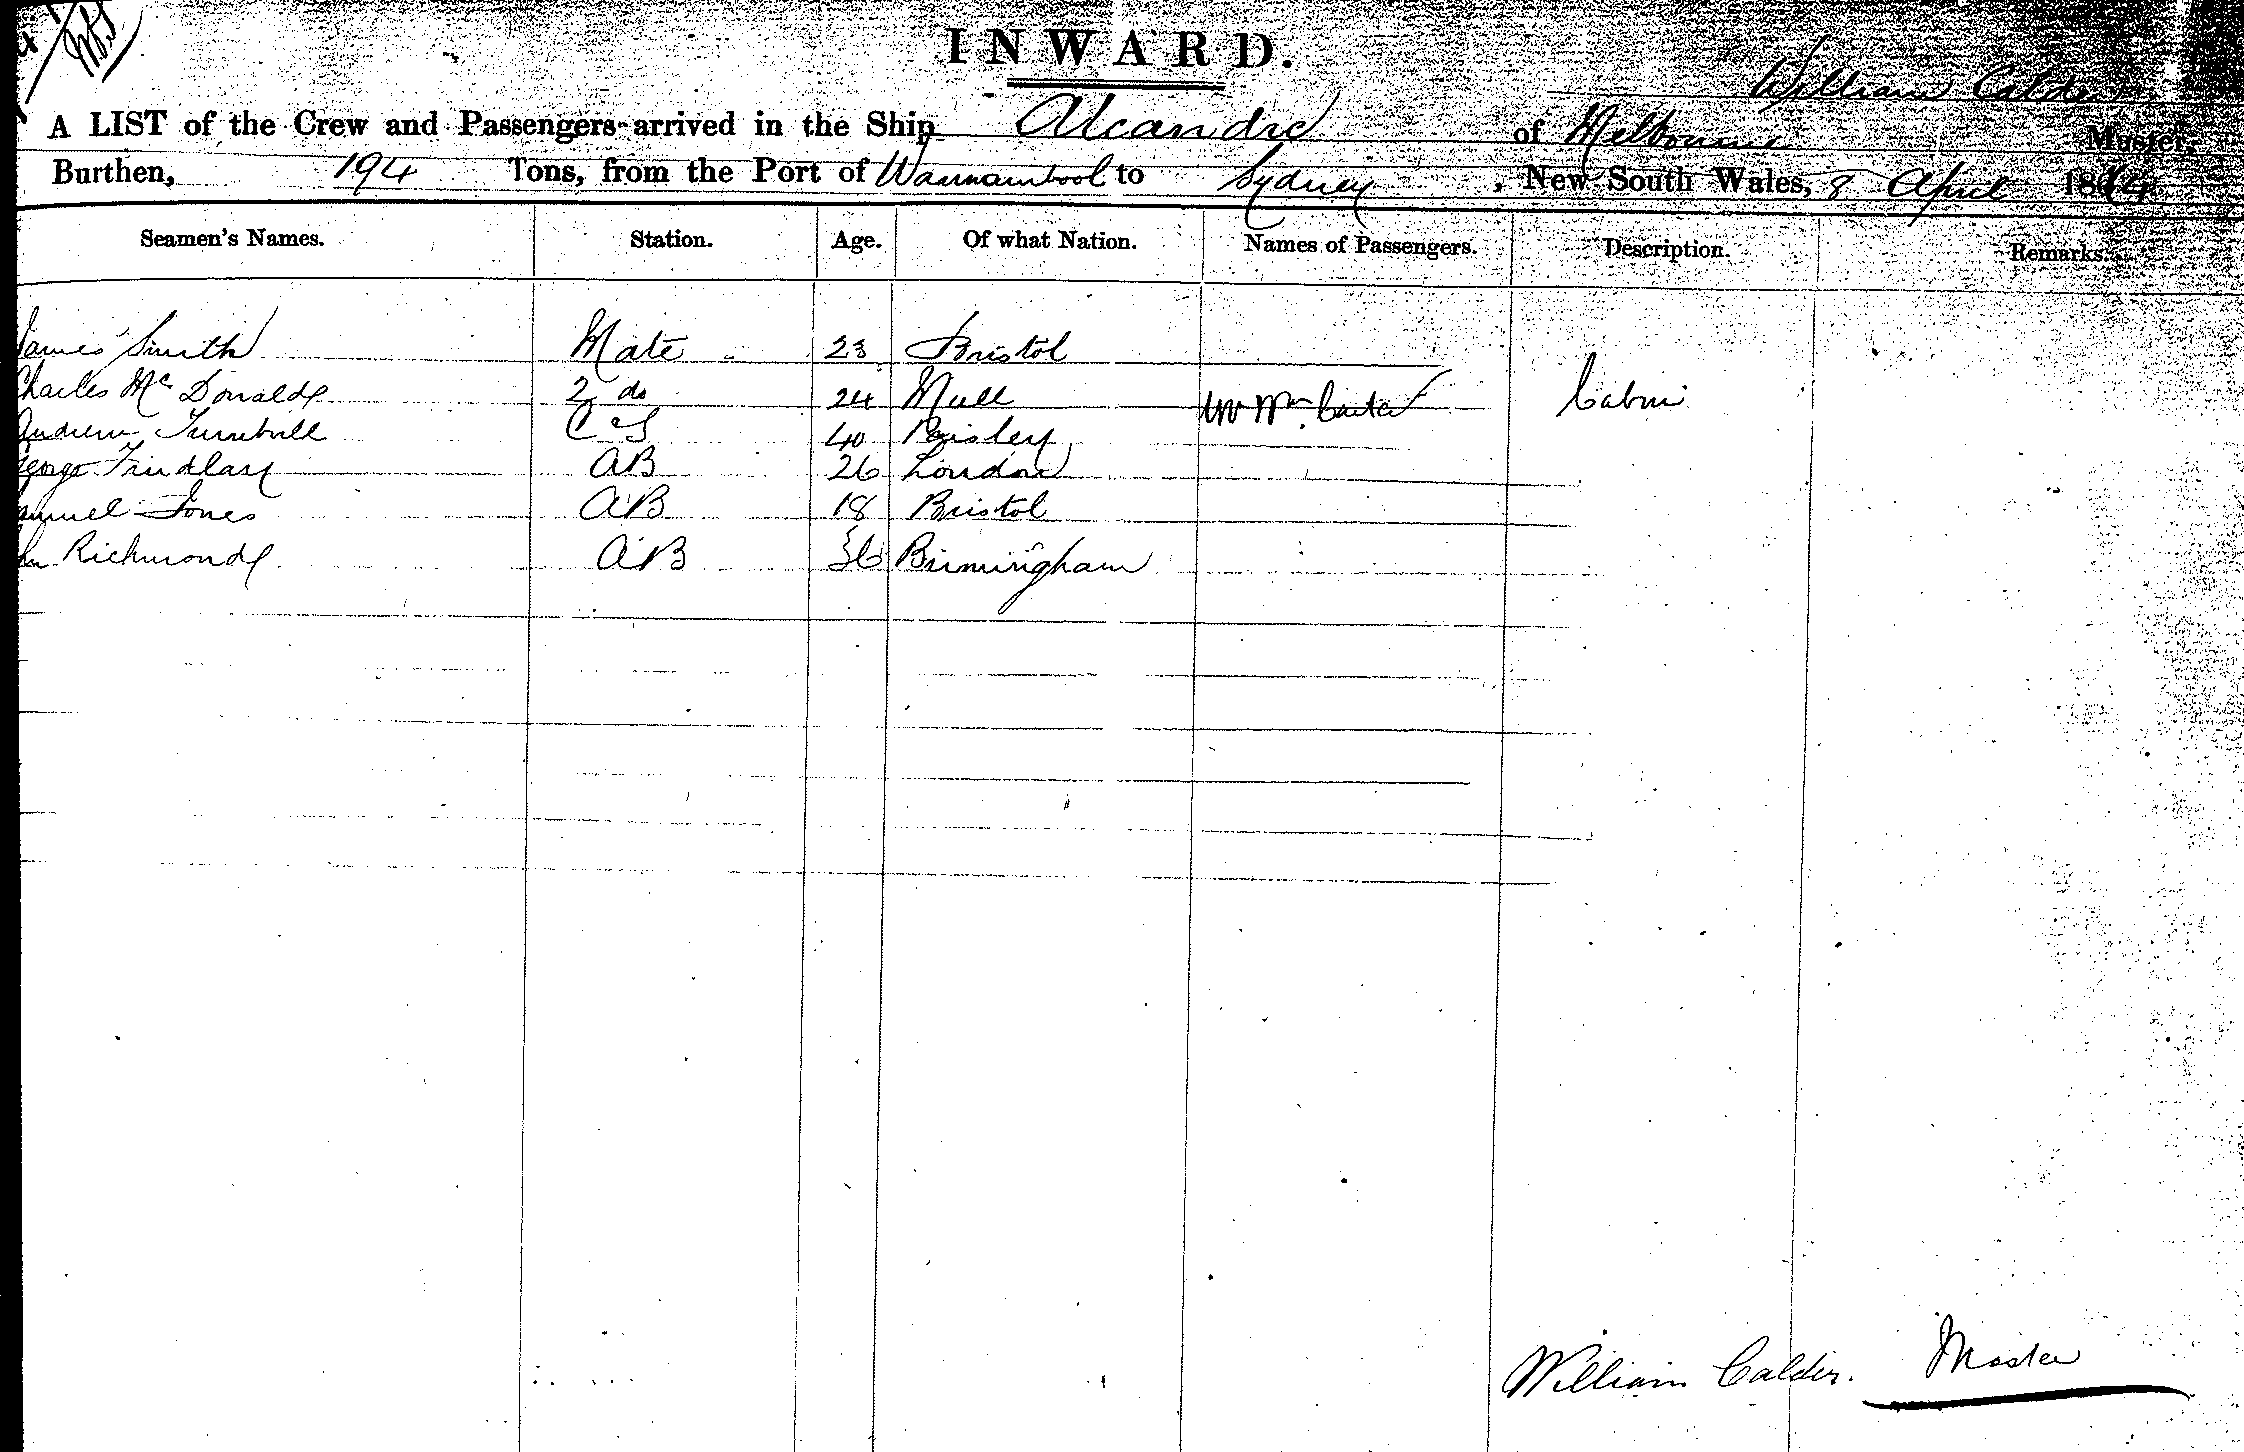 INWARD.
William Calder
A LIST of the Crew and Passengers arrived in the Ship Alcandre of Melbourne Master,
Burthen, 194 Tons, from the Port of Warrnambool to Sydney, New South Wales, 8 April 1864
Seamen's Names. Station. Age. Of what Nation. Names of Passengers. Description. Remarks.
James Smith Mate 23 Bristol
Charles McDonald 2 do 24 Mull Mr Wm Carter Cabin
Andrew Turnbull C & S 40 Paisley
George Frindlay AB 26 London
amuel Jones AB 18 Bristol
hn Richmond AB 36 Birmingham
William Calder. Master